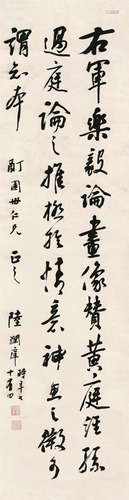 右軍樂毅論畫像贊黃庭經孫
過庭論之推極於情意神思之微可
謂知本
酊圃世仁大 正之
陸潤庠時年七十有四